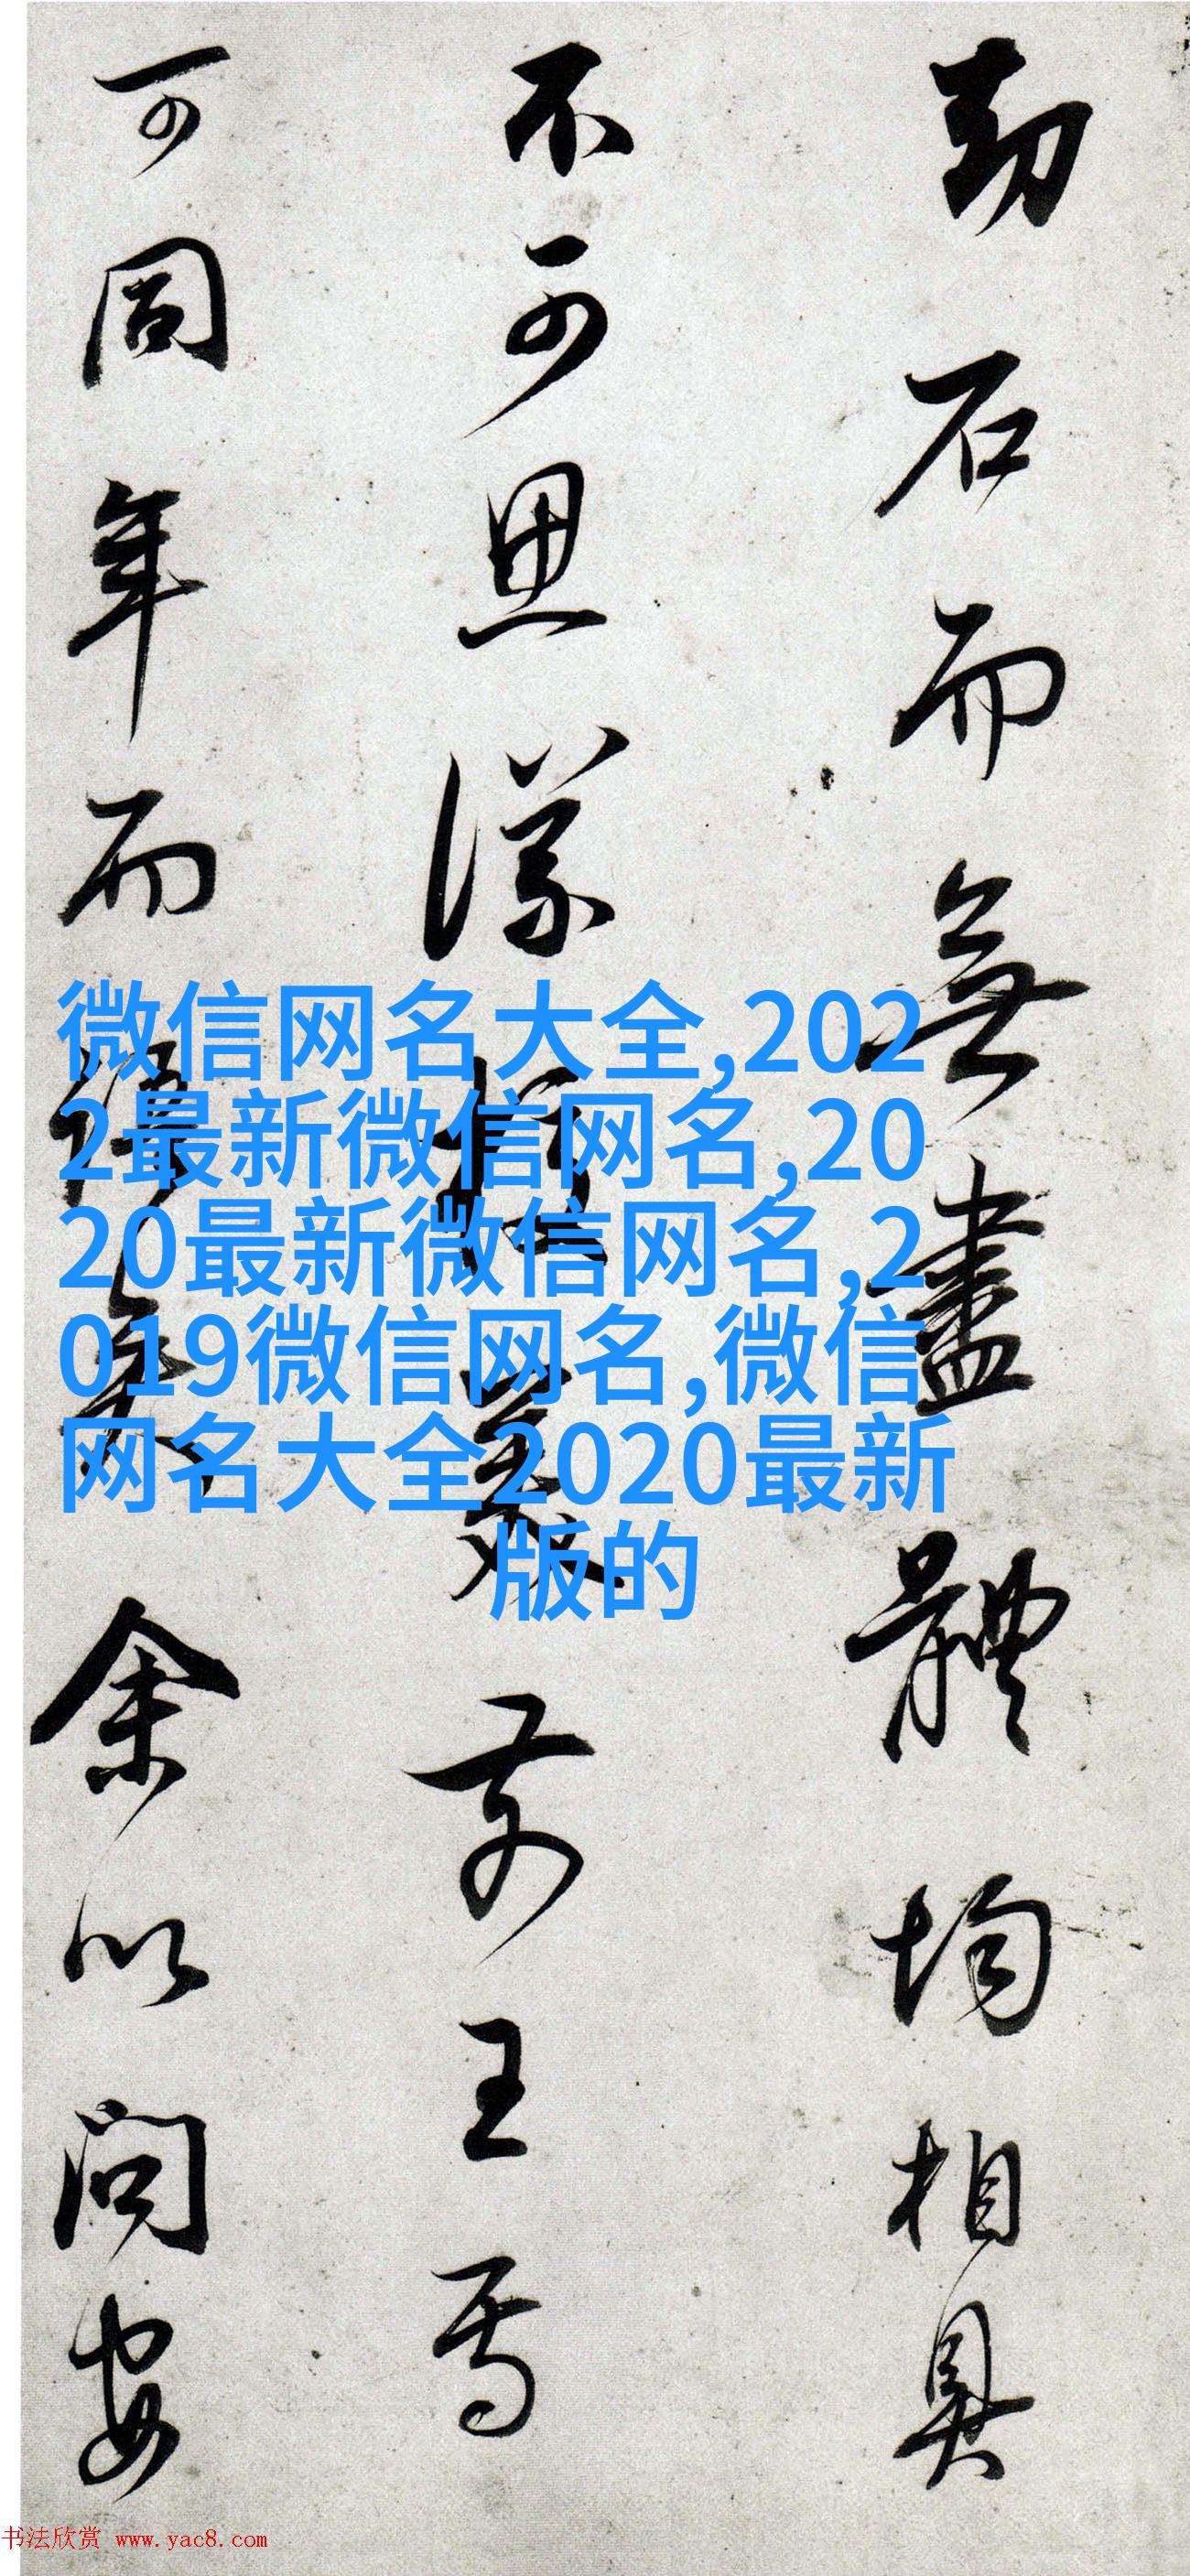 劫石而無盡體均相具
不可思議王
可同年而語矣余以問安
微信网名大全,202
2最新微信网名,20
20最新微信网名,2
019微信网名,微信
网名大全2020最新
版的
书法欣赏 www.yac8.com